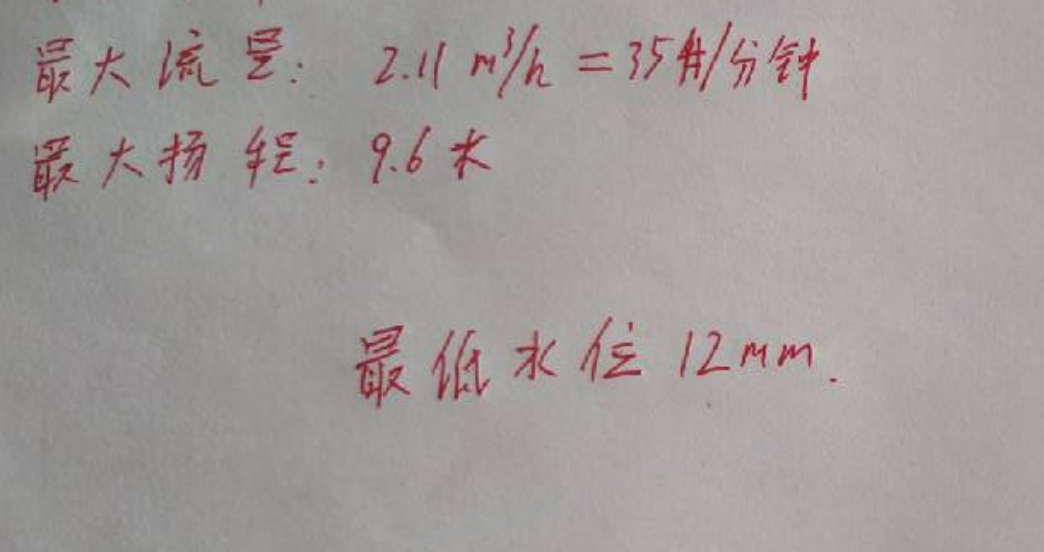 最大流量: 2.11 m³/h = 35升/分钟
最大扬程: 9.6米
最低水位 12mm.